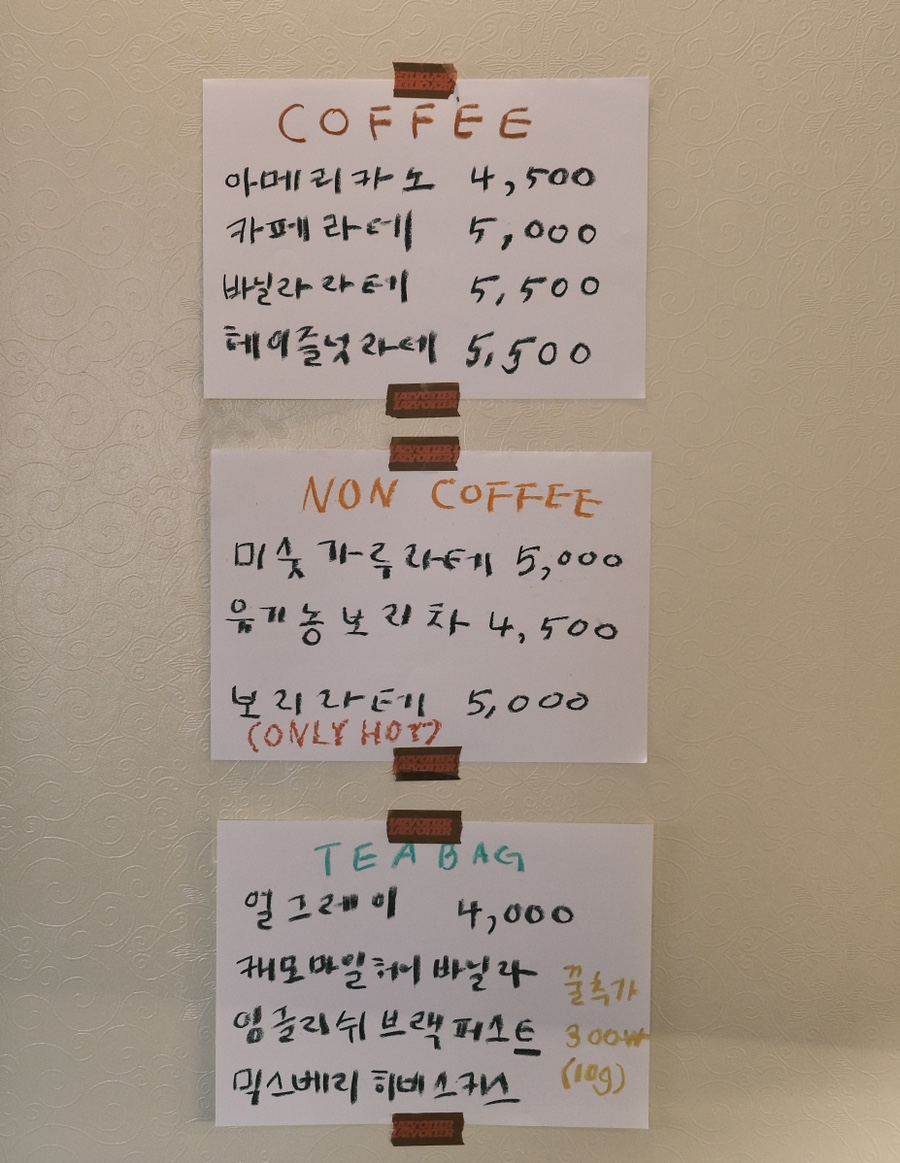 COFFEE
아메리카노 4,500
카페라떼 5,000
바닐라라떼 5,500
헤이즐넛라떼 5,500
NON COFFEE
미숫가루라떼 5,000
유기농보리차 4,500
보리라떼 5,000
(ONLY HOT)
TEABAG
얼그레이 4,000
캐모마일허니바닐라
잉글리쉬브랙퍼스트
믹스베리히비스커스
꿀추가
300₩
(10g)